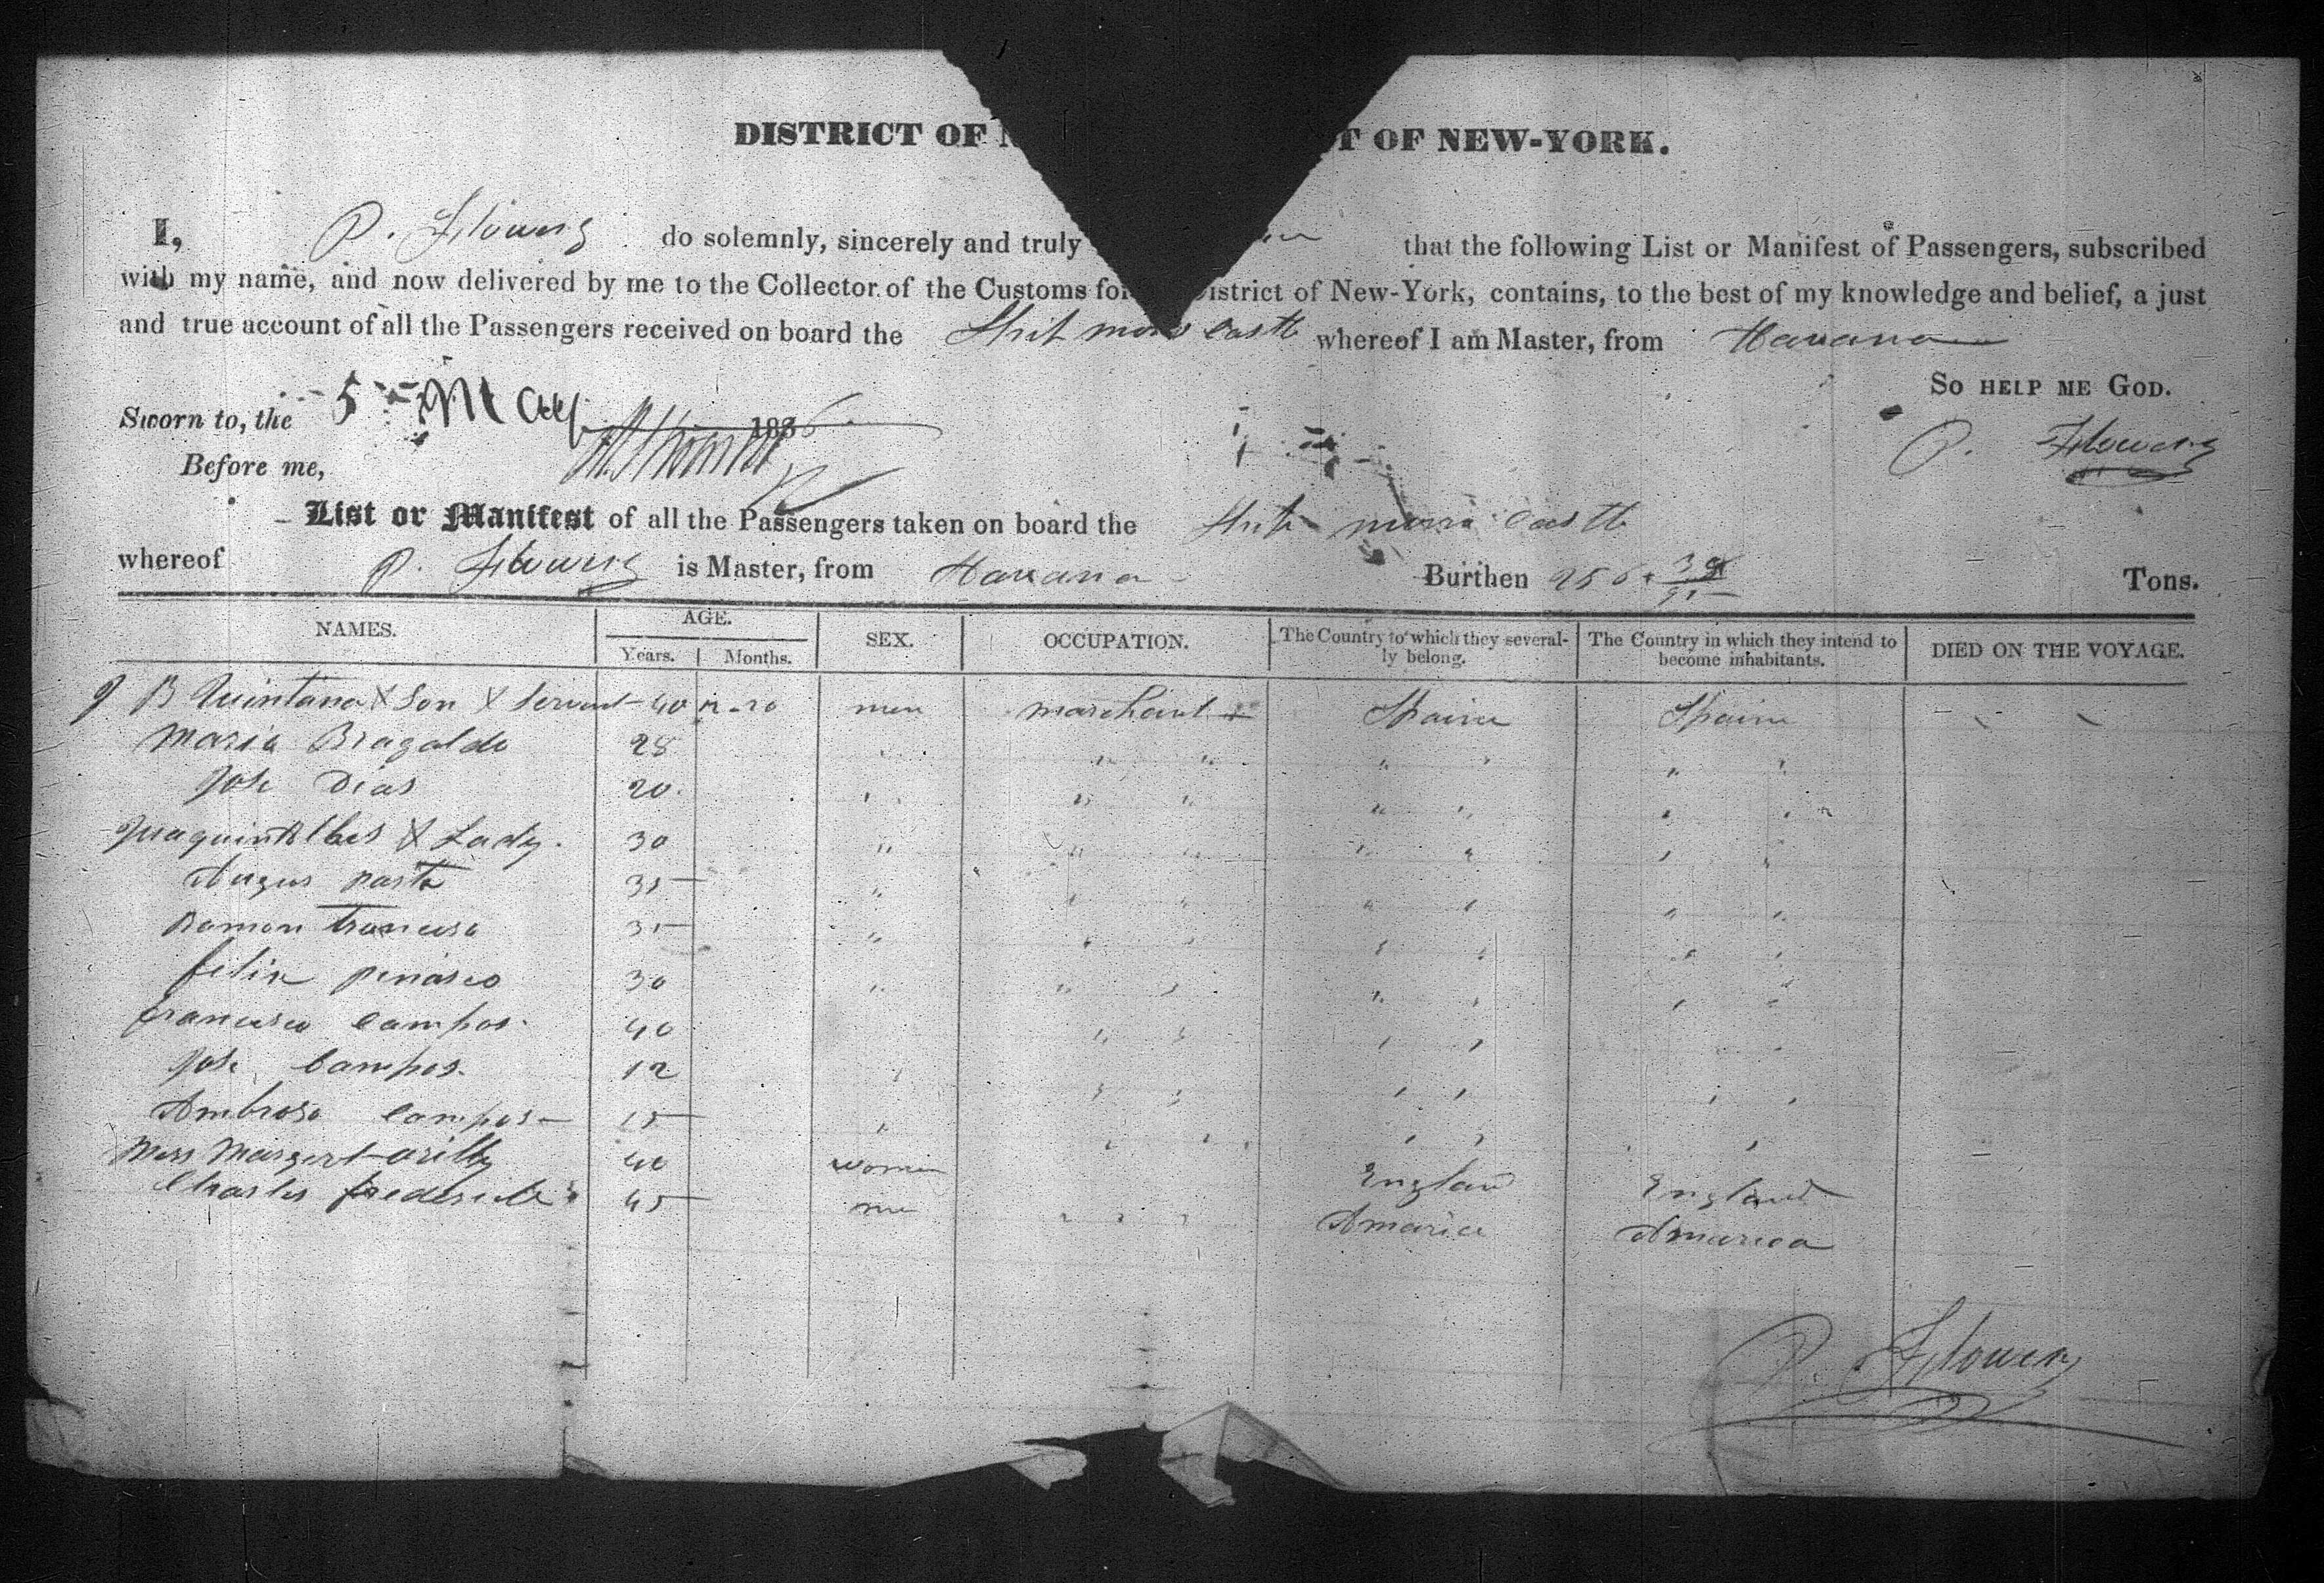 DISTRICT OF N T OF NEW-YORK.
I, P. Flowery do solemnly, sincerely and truly that the following List or Manifest of Passengers, subscribed
with my name, and now delivered by me to the Collector of the Customs for District of New-York, contains, to the best of my knowledge and belief, a just
and true account of all the Passengers received on board the Ship moro Castle whereof I am Master, from Havana
SO HELP ME GOD.
Sworn to, the 5 May 1836
P. Flowery
Before me,
List or Manifest of all the Passengers taken on board the Ship moro Castle
whereof P. Flowery is Master, from Havana Burthen 256 Tons.
NAMES. AGE. SEX. OCCUPATION. The Country to which they several- The Country in which they intend to DIED ON THE VOYAGE.
Years. Months. ly belong. become inhabitants.
J B Quintana & Son & Servant 40 12-20 men marchant Spain Spain
Maria Bragaldo 28 " " " " " " "
Jose Dias 20 " " " " " " "
& Lady. 30 " " " " " " "
35 " " " " " " "
Ramon 35 " " " " " " "
felix 30 " " " " " " "
francisco Campos 40 " " " " " "
Jose Campos. 12 " " " " " " "
Ambroso Campos 15 " " " " " " "
Margert 40 women England England
Charles frederick 45 me " " " Amarica America
P. Flowery